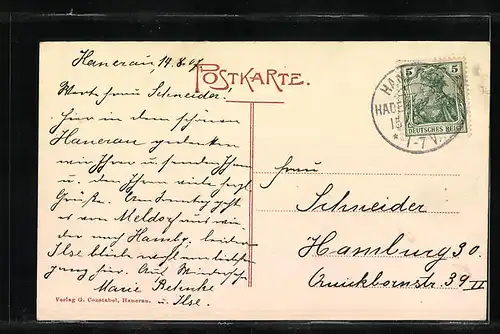 Hanerau, 14.8.07
POSTKARTE.
Werte Frau Schneider!
Hier in dem schönen
Hanerau gedenken
wir Ihrer u. senden Ihnen
u. den Ihren viele herzl.
Grüße. Am Sonntag geht
es von Meldorf aus wie
der nach Hambg. leider
Ilse bleibt
Marie Behncke
u. Ilse.
Verlag G. Constabel, Hanerau.
HAN
HADE
15
* 1-7 V.
5 5
DEUTSCHES REICH
Frau
Schneider
Hamburg 30.
Quickbornstr. 39 II